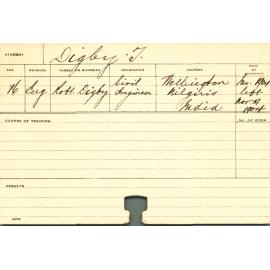 STUDENT
Digby. T.
AGE RELIGION PARENT OR GUARDIAN OCCUPATION ADDRESS DATE OF ENTRANCE
16 Eng Robt Digby Civil Engineer Wellington Nilgiris India Jan 1904 left Nov 19 1904
COURSE OF TRAINING NO. OF ROOM
RESULTS
DATE